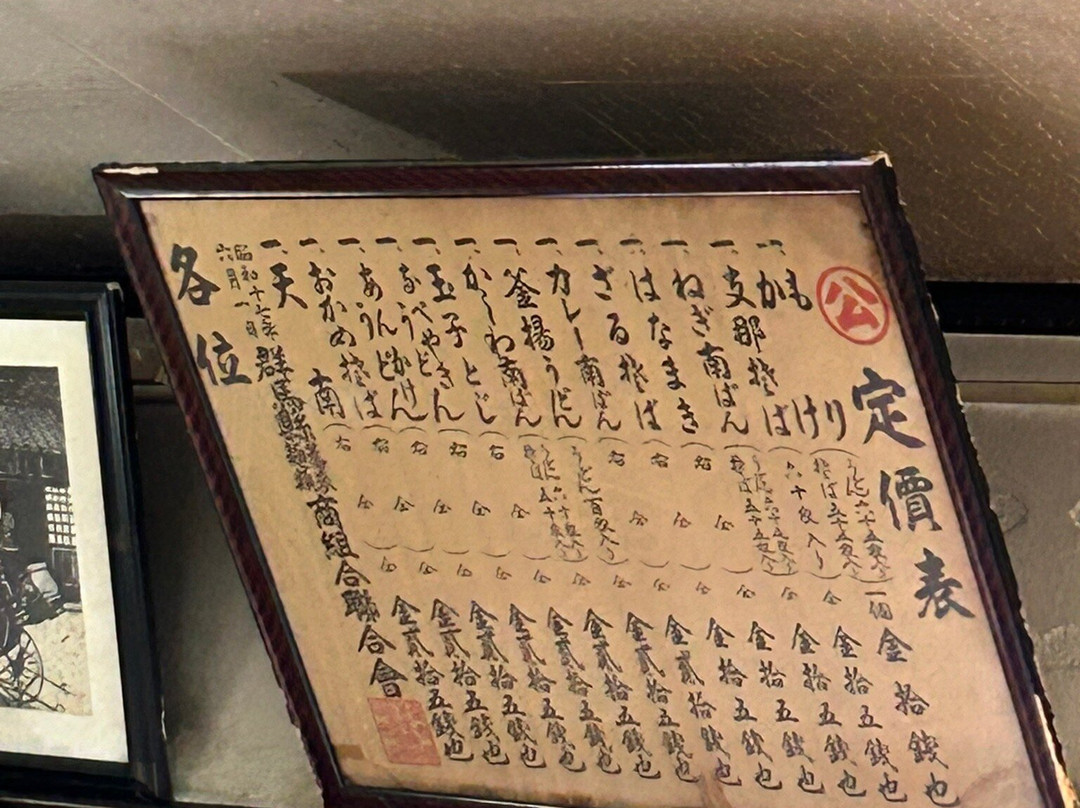 公 定價表
一、もりかけ（うどん六十五匁入 そば五十五匁入）一個 金拾錢也
一、支那そば（六十匁入り）仝 金拾五錢也
一、ねぎ南ばん（うどん六十五匁入 そば五十五匁入）仝 金拾五錢也
一、はなまき（右仝）仝 金拾五錢也
一、ざるそば（右仝）仝 金拾五錢也
一、カレー南ばん（右仝）仝 金貳拾錢也
一、釜揚うどん（うどん百匁入）仝 金貳拾五錢也
一、かしわ南ばん（うどん六十匁入 そば五十匁入）仝 金貳拾五錢也
一、玉子とじ（右仝）仝 金貳拾五錢也
一、なべやきうどん（右仝）仝 金貳拾五錢也
一、あんかけうどん（右仝）仝 金貳拾五錢也
一、おかめそば（右仝）仝 金貳拾五錢也
一、天南（右仝）仝 金貳拾五錢也
昭和十七年六月一日
群馬縣 商組合聯合會
各位